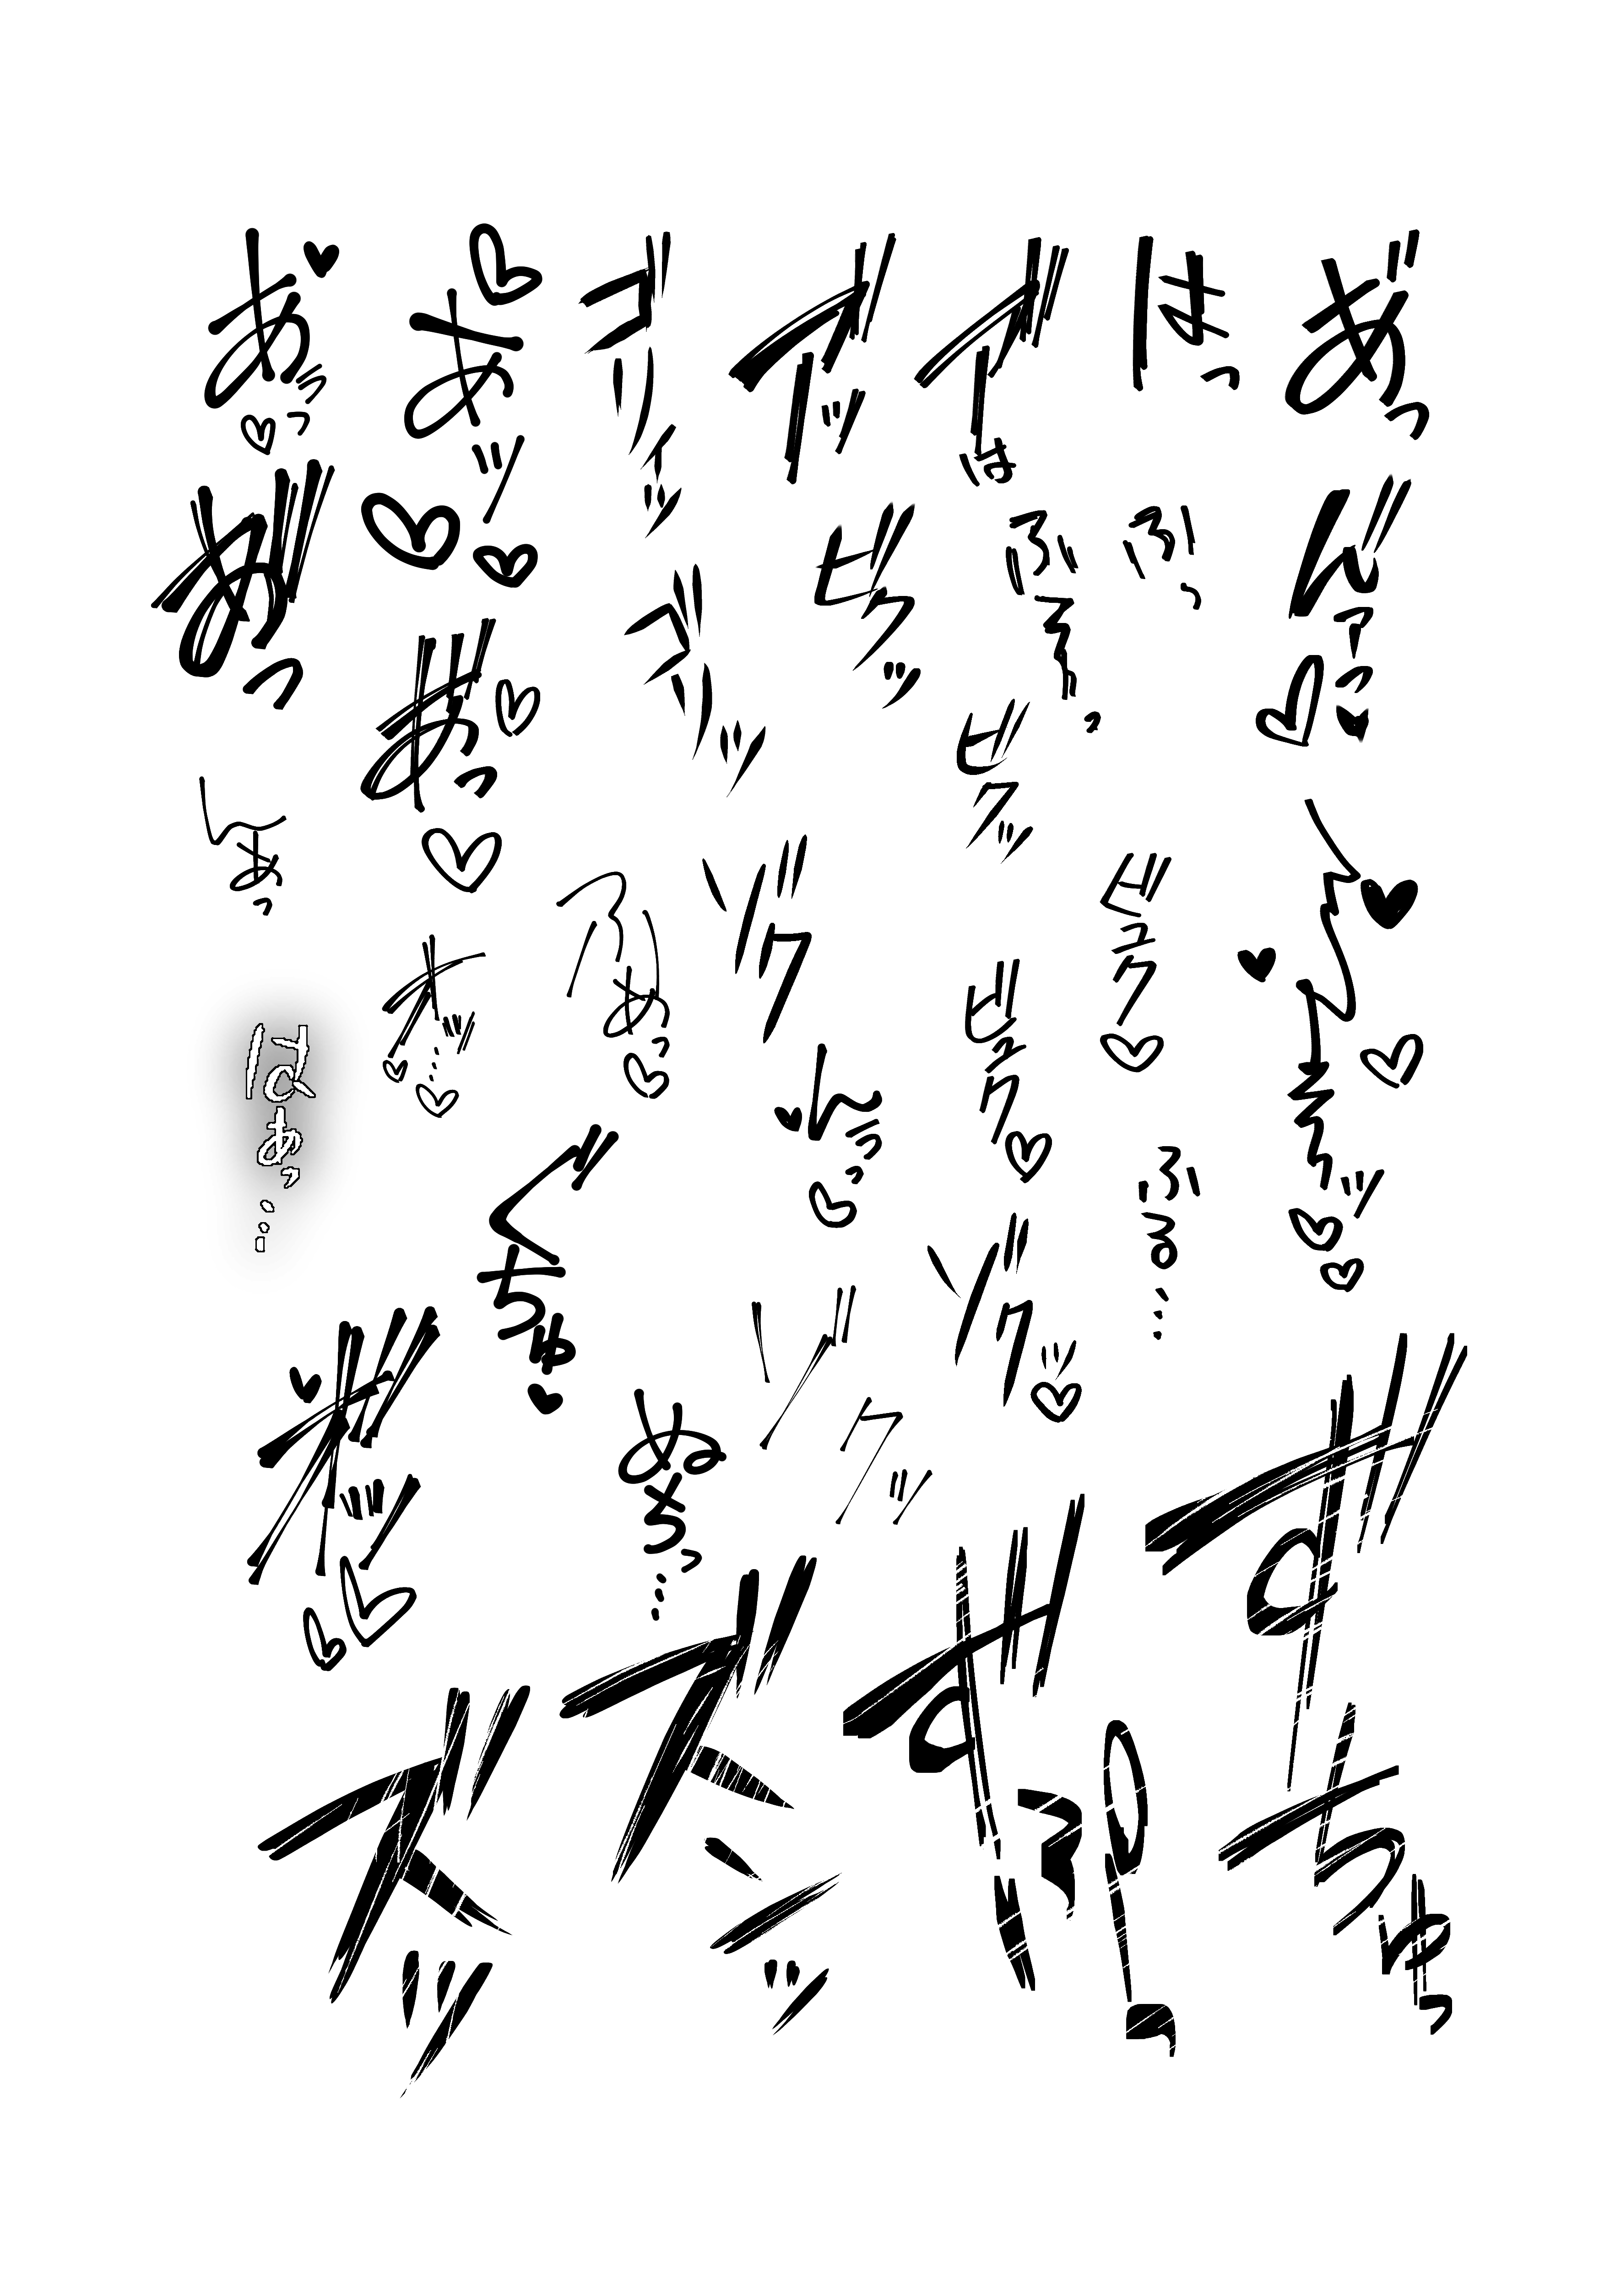 あ゛っ
ん゛ァっ♡♥
〜〜〜ッ♥♥♡♡♡
はっ
ふっ
ふーっ
ビュク♡
ふる…
ずちゅっ
イ゛
は
ビクッ
ビュク♡
ゾクッ♡
ずっぷ
イ゛ッ
ビクッ
ゾク
んうっ♥♡
ゾクッ
ゴリィッ
ゴリッ
ふぁっ♡
ぐちゅ♥
ぬちっ…
ズンッ
♡あッ♡♡
あ゛っ♡♡
オ゛ッ…♡♡
ズッ
あぅっ♥♡
あ゛っ
んぁっ
はぁっ…
オ゛ッ♥♡♡